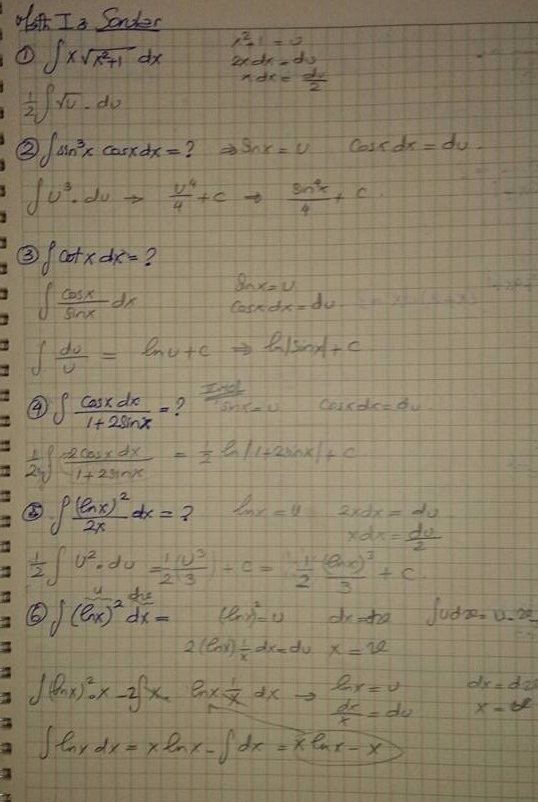 Math I : Sorular
① ∫ x √(x²+1) dx    x²+1 = u
2x dx = du
x dx = du/2
1/2 ∫ √u · du
② ∫ sin³x cosx dx = ? ⇒ sinx = u    cosx dx = du
∫ u³ · du → u⁴/4 + c → sin⁴x/4 + c
③ ∫ cotx dx = ?
∫ cosx/sinx dx    sinx = u
cosx dx = du
∫ du/u = lnu + c ⇒ ln|sinx| + c
④ ∫ cosx dx/(1+2sinx) = ?    sinx = u    cosx dx = du
1/2 ∫ 2cosx dx/(1+2sinx) = 1/2 ln|1+2sinx| + c
5 ∫ (lnx)²/2x dx = ?    lnx = u    2xdx = du
xdx = du/2
1/2 ∫ u² · du = 1/2 (u³/3) + c = 1/2 (lnx)³/3 + c
u    dv
⑥ ∫ (lnx)² dx =    (lnx)² = u    dx = dv    ∫ u dv = u·v
2(lnx) 1/x dx = du    x = v
∫ (lnx)² · x - 2∫ x · lnx · 1/x dx →    lnx = u    dx = dv
dx/x = du    x = v
∫ lnx dx = x lnx - ∫ dx = x lnx - x